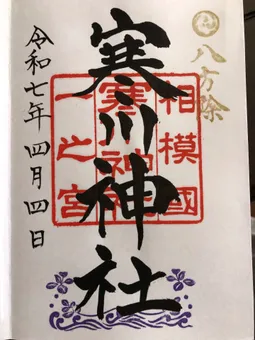 八方除
寒川神社
相模國
寒川神社
一之宮
令和七年 四月四日